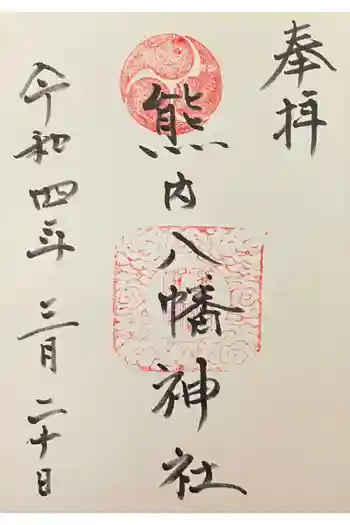 奉拝
熊内八幡神社
令和四年三月二十日